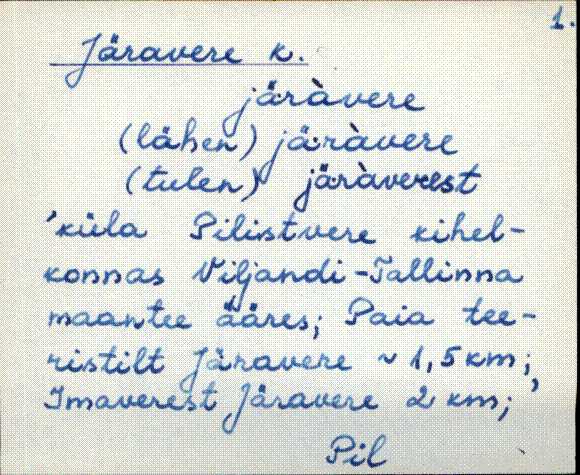 1.
Järavere k.
järàvere
(lähen) järàvere
(tulen) järàverest
'küla Pilistvere kihel-
konnas Viljandi-Tallinna
maantee ääres; Paia tee-
ristilt Järavere ~ 1,5 km;
Imaverest Järavere 2 km;'
Pil